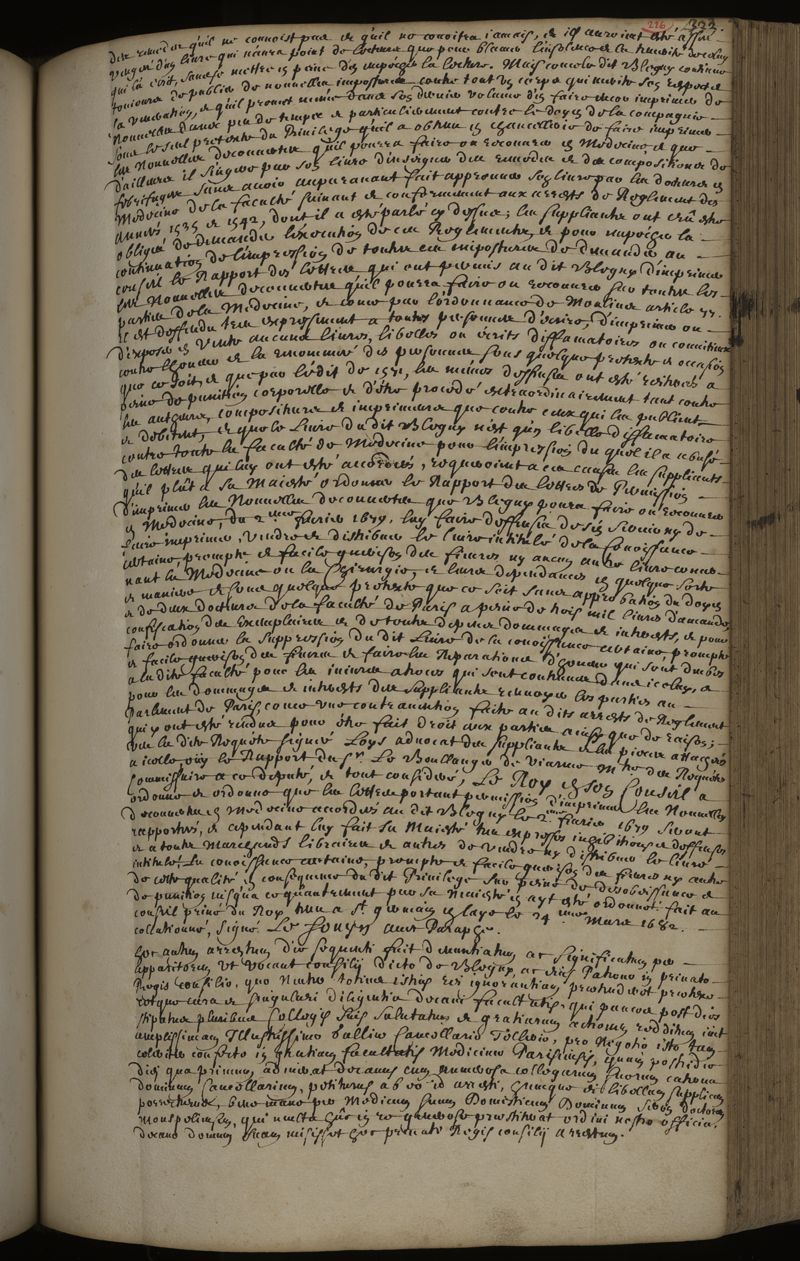 226 323.
des remedes qu'il ne connoist pas et qu'il ne conoitra iamais, et ils auroient esté assez
vengez d'un livre qui n'aura point de lecture que pour blamer l'insolence et la
qui l'a écrit, sans se mettre en peine d'en empescher la lecture. Mais comme le dit Blegny continue
toujours de publier de nouvelles impostures contre tout un corps qui merite ses respects et
la veneration, et qu'il promet meme dans son dernier volume d'en faire encor imprimer de
nouvelles dans peu de temps et particulierement contre le doyen de la compagnie
sous le seul pretexte du Privilege qu'il a obtenu en chancellerie de faire imprimer
les Nouvelles decouvertes qu'il pourra faire ou recouvrer en Medecine et que
d'ailleurs il s'ingere par son livre d'enseigner des remedes et des compositions de
febrifuges sans avoir auparavant fait approuver son livre par les docteurs en
Medecine de la faculté suivant et conformement aux arrests de Reglement des
années 1535 et 1542, dont il a esté parlé cy dessus; les suppliants ont crû estre
obligés de demander l'execution de ces Reglements, et pour empescher la
continuation de l'impression de toutes ces impostures de demander au
conseil le Rapport des lettres qui ont permis au dit Blegny d'imprimer
les Nouvelles decouvertes qu'il pourra faire ou recouvrer sur toutes les
parties de la Medecine, et comme par l'ordonnance de Moulins article 77.
il est deffendu tres expressement a toutes personnes d'ecrire, d'imprimer ou
d'exposer en vente aucuns livres, libelles ou écrits diffamatoires ou convitieux
contre l'honneur et la renommée des personnes sous quelque pretexte et occasion
que ce soit, et que par l'édit de 1571, les mémes deffenses ont esté reiterées a
peine de punition corporelle et d'être procedé extraordinairement tant contre
les auteurs, compositeurs et imprimeurs que contre ceux qui les publient
et debitent, et que le Livre du dit Blegny n'est qu'un libelle diffamatoire
contre toute la faculté de Medecine pour l'impression duquel il a abusé
des lettres qui luy ont esté accordées, requeroient a ces causes les suppliants
qu'il plût a sa Maiesté ordonner le Rapport des lettres de Permission
d'imprimer les Nouvelles decouvertes que Blegny poura faire ou recouvrer
en Medecine, du 2.me fevrier 1679. luy faire deffenses de s'en servir ny de
faire imprimer, vendre et distribuer le livre intitulé de la Conoissance
certaine, prompte et facile guerison des fievres ny aucun autre livre concer-
nant la Medecine ou la Chirurgie, et leurs dependances en quelque sorte
et maniere et sous quelque pretexte que ce soit sans approbation du doyen
et de deux docteurs de la faculté de Paris a peine de trois mil livres d'amande,
confiscation des exemplaires et de touts depens dommages et interests, et pour
faire ordonner la suppression du dit Livre de la conoissance certaine, prompte
et facile guerison des fievres et faire les Reparations d'honneur qui sont dues
a la dite faculté pour les iniures atroces qui sont contenues dans iceluy, et
pour les dommages et interests des suppliants renvoyer les parties au
Parlement de Paris, comme une contravention faite au dits arrests de Reglement
qui y ont esté rendus pour étre fait droit aux parties ainsy que de raison;
veu la dite Requéte signée Loys advocat des suppliants et les pieces attachées
a icelle, ouy le Rapport du Sr. Le Boullanger de Viarme Mtre des Requétes
commissaire a ce deputé, et tout consideré, Le Roy en son Conseil a
ordonné et ordonne que les lettres portant permission d'imprimer les Nouvelles
decouvertes en Medecine accordées au dit Blegny le 2.me fevrier 1679 seront
rapportées, et cependant luy fait sa Maiesté tres expresses inhibitions et deffenses
et a touts Marchands libraires et autres de vendre ny distribuer le livre
intitulé La conoissance certaine, prompte et facile guerison des fievres ny autre
de cette qualité en consequence du dit Privilege sur peine de desobeissance et
de punition iusqu'a ce qu'autrement par sa Maiesté en ayt esté ordonné. fait au
conseil privé du Roy tenu a St. Germain en Laye le 24.me Mars 1682.
collationné, signé
Hoc autem arrestum die sequenti fuit denuntiatum ac significatum per
apparitorem ut vocant consilij dicto de Blegny, ac eius Patrono in privato
Regis consilio, quo
totque cura et singulari diligentia decani facultatis, qui paucos post dies
stipatus pluribus Collegis suis salutatum et gratiarum actiones redditum ivit
amplissimum Illustrissimo Galliae Cancellario Tellerio, pro Negotio isto tam
confecto in gratiam facultatis Medicinae Parisiensis, quum postridie
dies quo primum adierat decanus cum numerosa collegarum suorum caterva
dominum Cancellarium, petiturus ab eo id arresti, eumque ei libellum supplicem
porrecturus, bene mane per Medicum suum Domesticum Dominum doctorem
Monspeliensem, qui multa in re generose praestiterat ordini nostro officia,
decano domum suam misisset hoc privati Regis consilij arrestum.